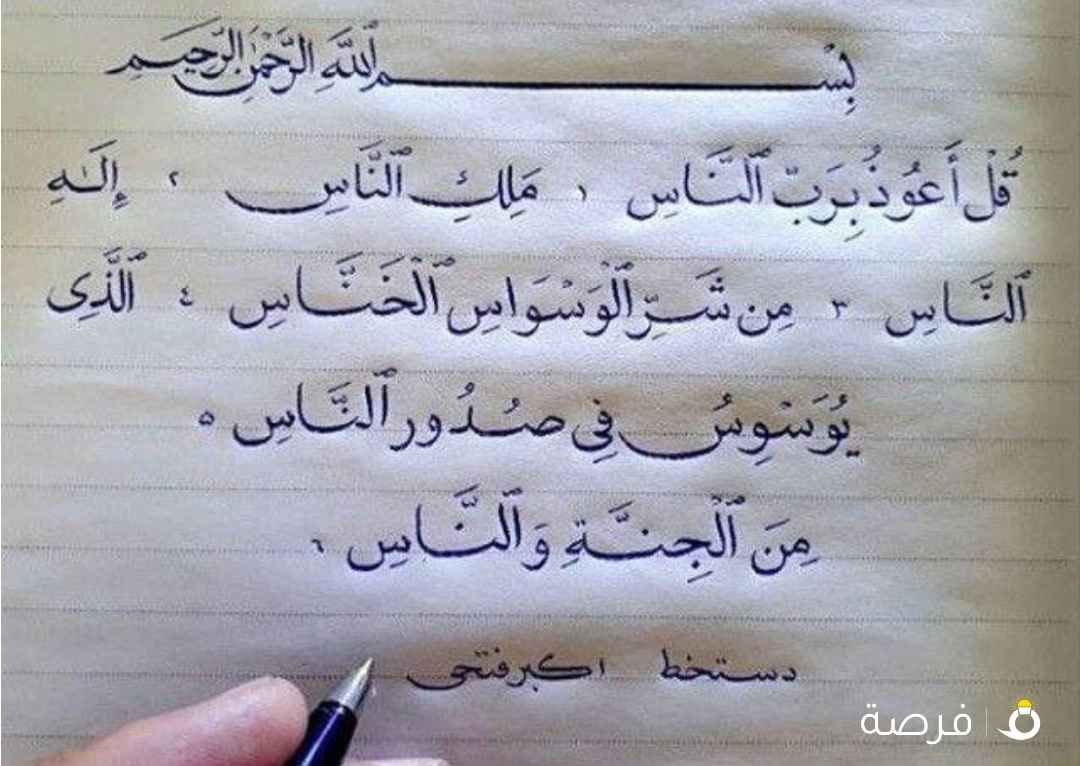 بِسْمِ ٱللَّهِ ٱلرَّحْمَٰنِ ٱلرَّحِيمِ
قُلْ أَعُوذُ بِرَبِّ ٱلنَّاسِ ١ مَلِكِ ٱلنَّاسِ ٢ إِلَٰهِ
ٱلنَّاسِ ٣ مِن شَرِّ ٱلْوَسْوَاسِ ٱلْخَنَّاسِ ٤ ٱلَّذِى
يُوَسْوِسُ فِى صُدُورِ ٱلنَّاسِ ٥
مِنَ ٱلْجِنَّةِ وَٱلنَّاسِ ٦
دستخط اکبر فتحی
فرصة